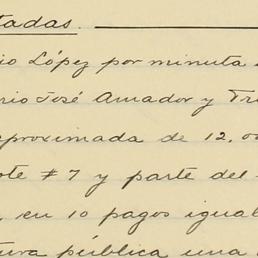 tadas.
io López por minuta
rio José Amador y Tri
aproximada de 12.00
ote #7 y parte del
en 10 pagos igual
tura pública una